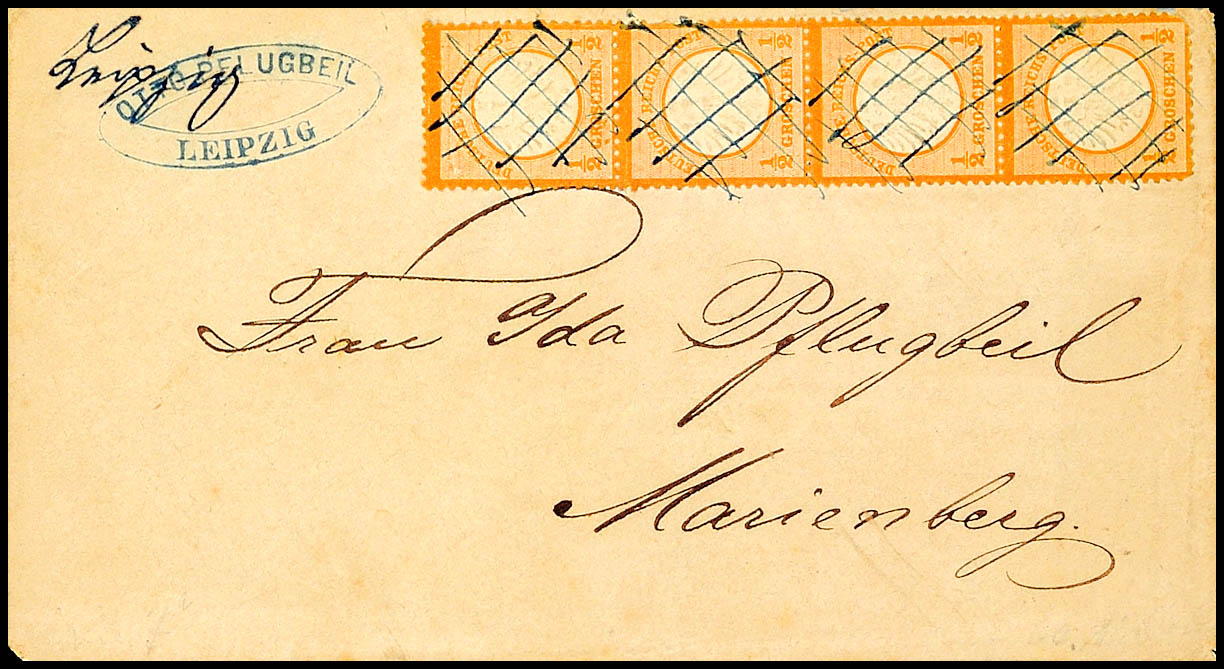 Leipzig
OTTO PFLUGBEIL
LEIPZIG
DEUTSCHE REICHS-POST
½ ½ GROSCHEN
DEUTSCHE REICHS-POST
½ ½ GROSCHEN
DEUTSCHE REICHS-POST
½ ½ GROSCHEN
DEUTSCHE REICHS-POST
½ ½ GROSCHEN
Frau Ida Pflugbeil
Marienberg.